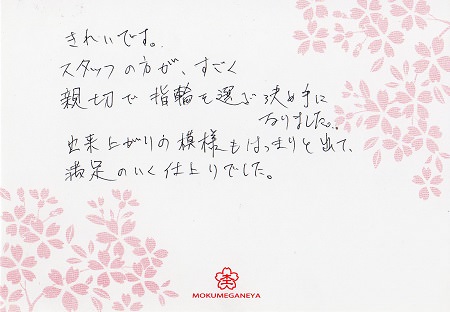 きれいです。
スタッフの方が、すごく
親切で指輪を選ぶ決め手に
なりました。
出来上がりの模様もはっきりと出て、
満足のいく仕上りでした。
MOKUMEGANEYA